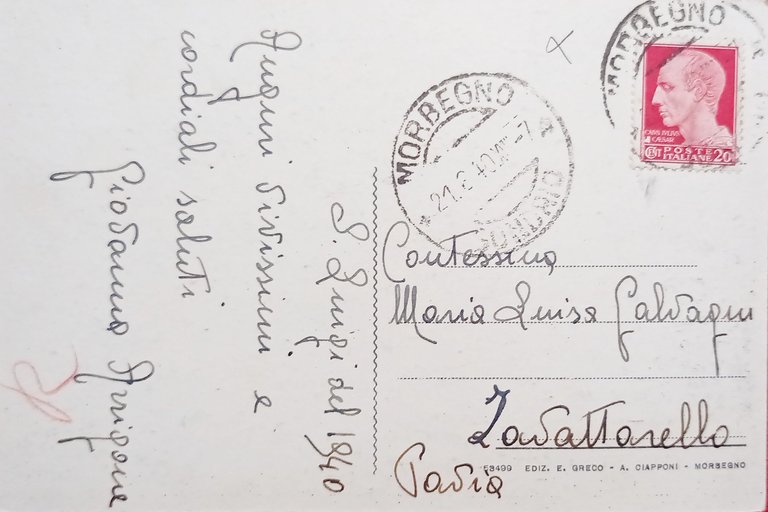 S. Luigi del 1940
Auguri vivissimi e
cordiali saluti
Giovanna Arrigone
MORBEGNO
21.6.40
SONDRIO
MORBEGNO
CAIVS IVLIVS
CAESAR
CENT POSTE
ITALIANE 20
Contessina
Maria Luisa Galvagni
Zavattarello
Pavia
58499 EDIZ. E. GRECO - A. CIAPPONI - MORBEGNO